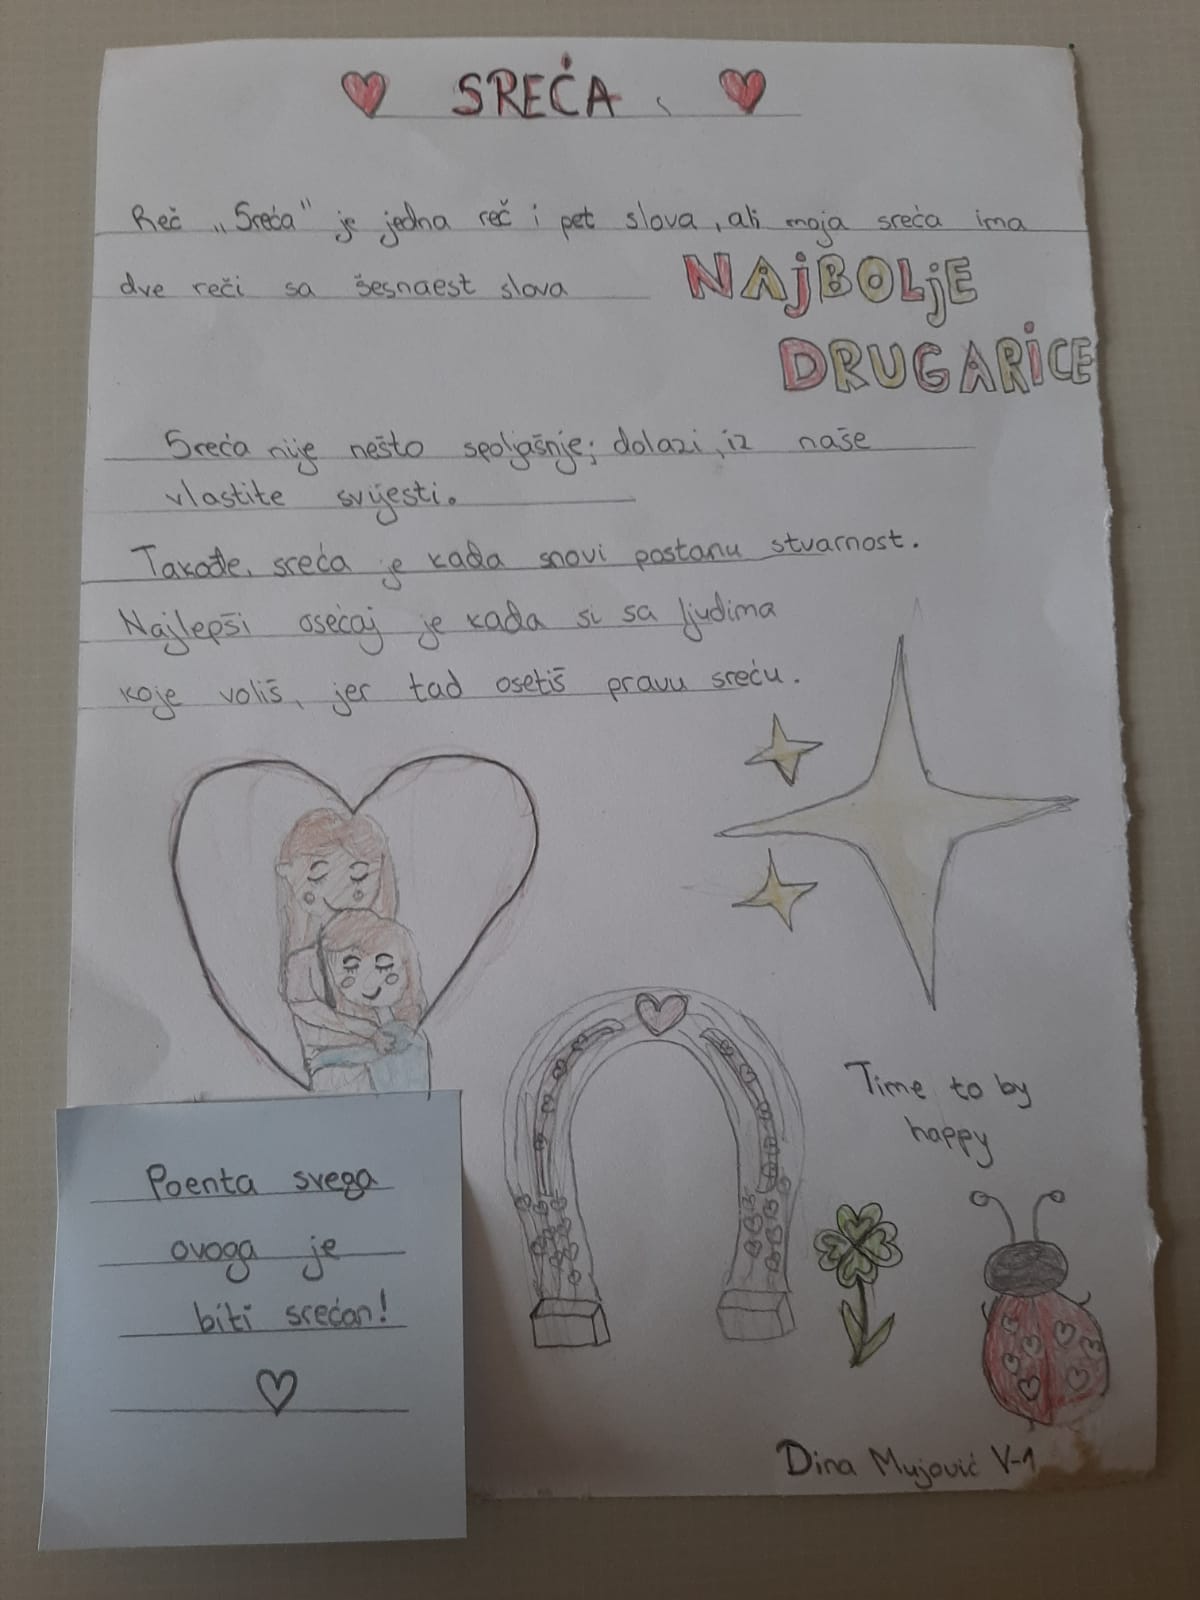 SREĆA
Reč „Sreća" je jedna reč i pet slova, ali moja sreća ima
dve reči sa šesnaest slova
NAjBOLjE
DRUGARiCE
Sreća nije nešto spoljašnje; dolazi, iz naše
vlastite svijesti.
Takođe, sreća je kada snovi postanu stvarnost.
Najlepši osećaj je kada si sa ljudima
koje voliš, jer tad osetiš pravu sreću.
Time to by
happy
Poenta svega
ovoga je
biti srećan!
Dina Mujović V-1